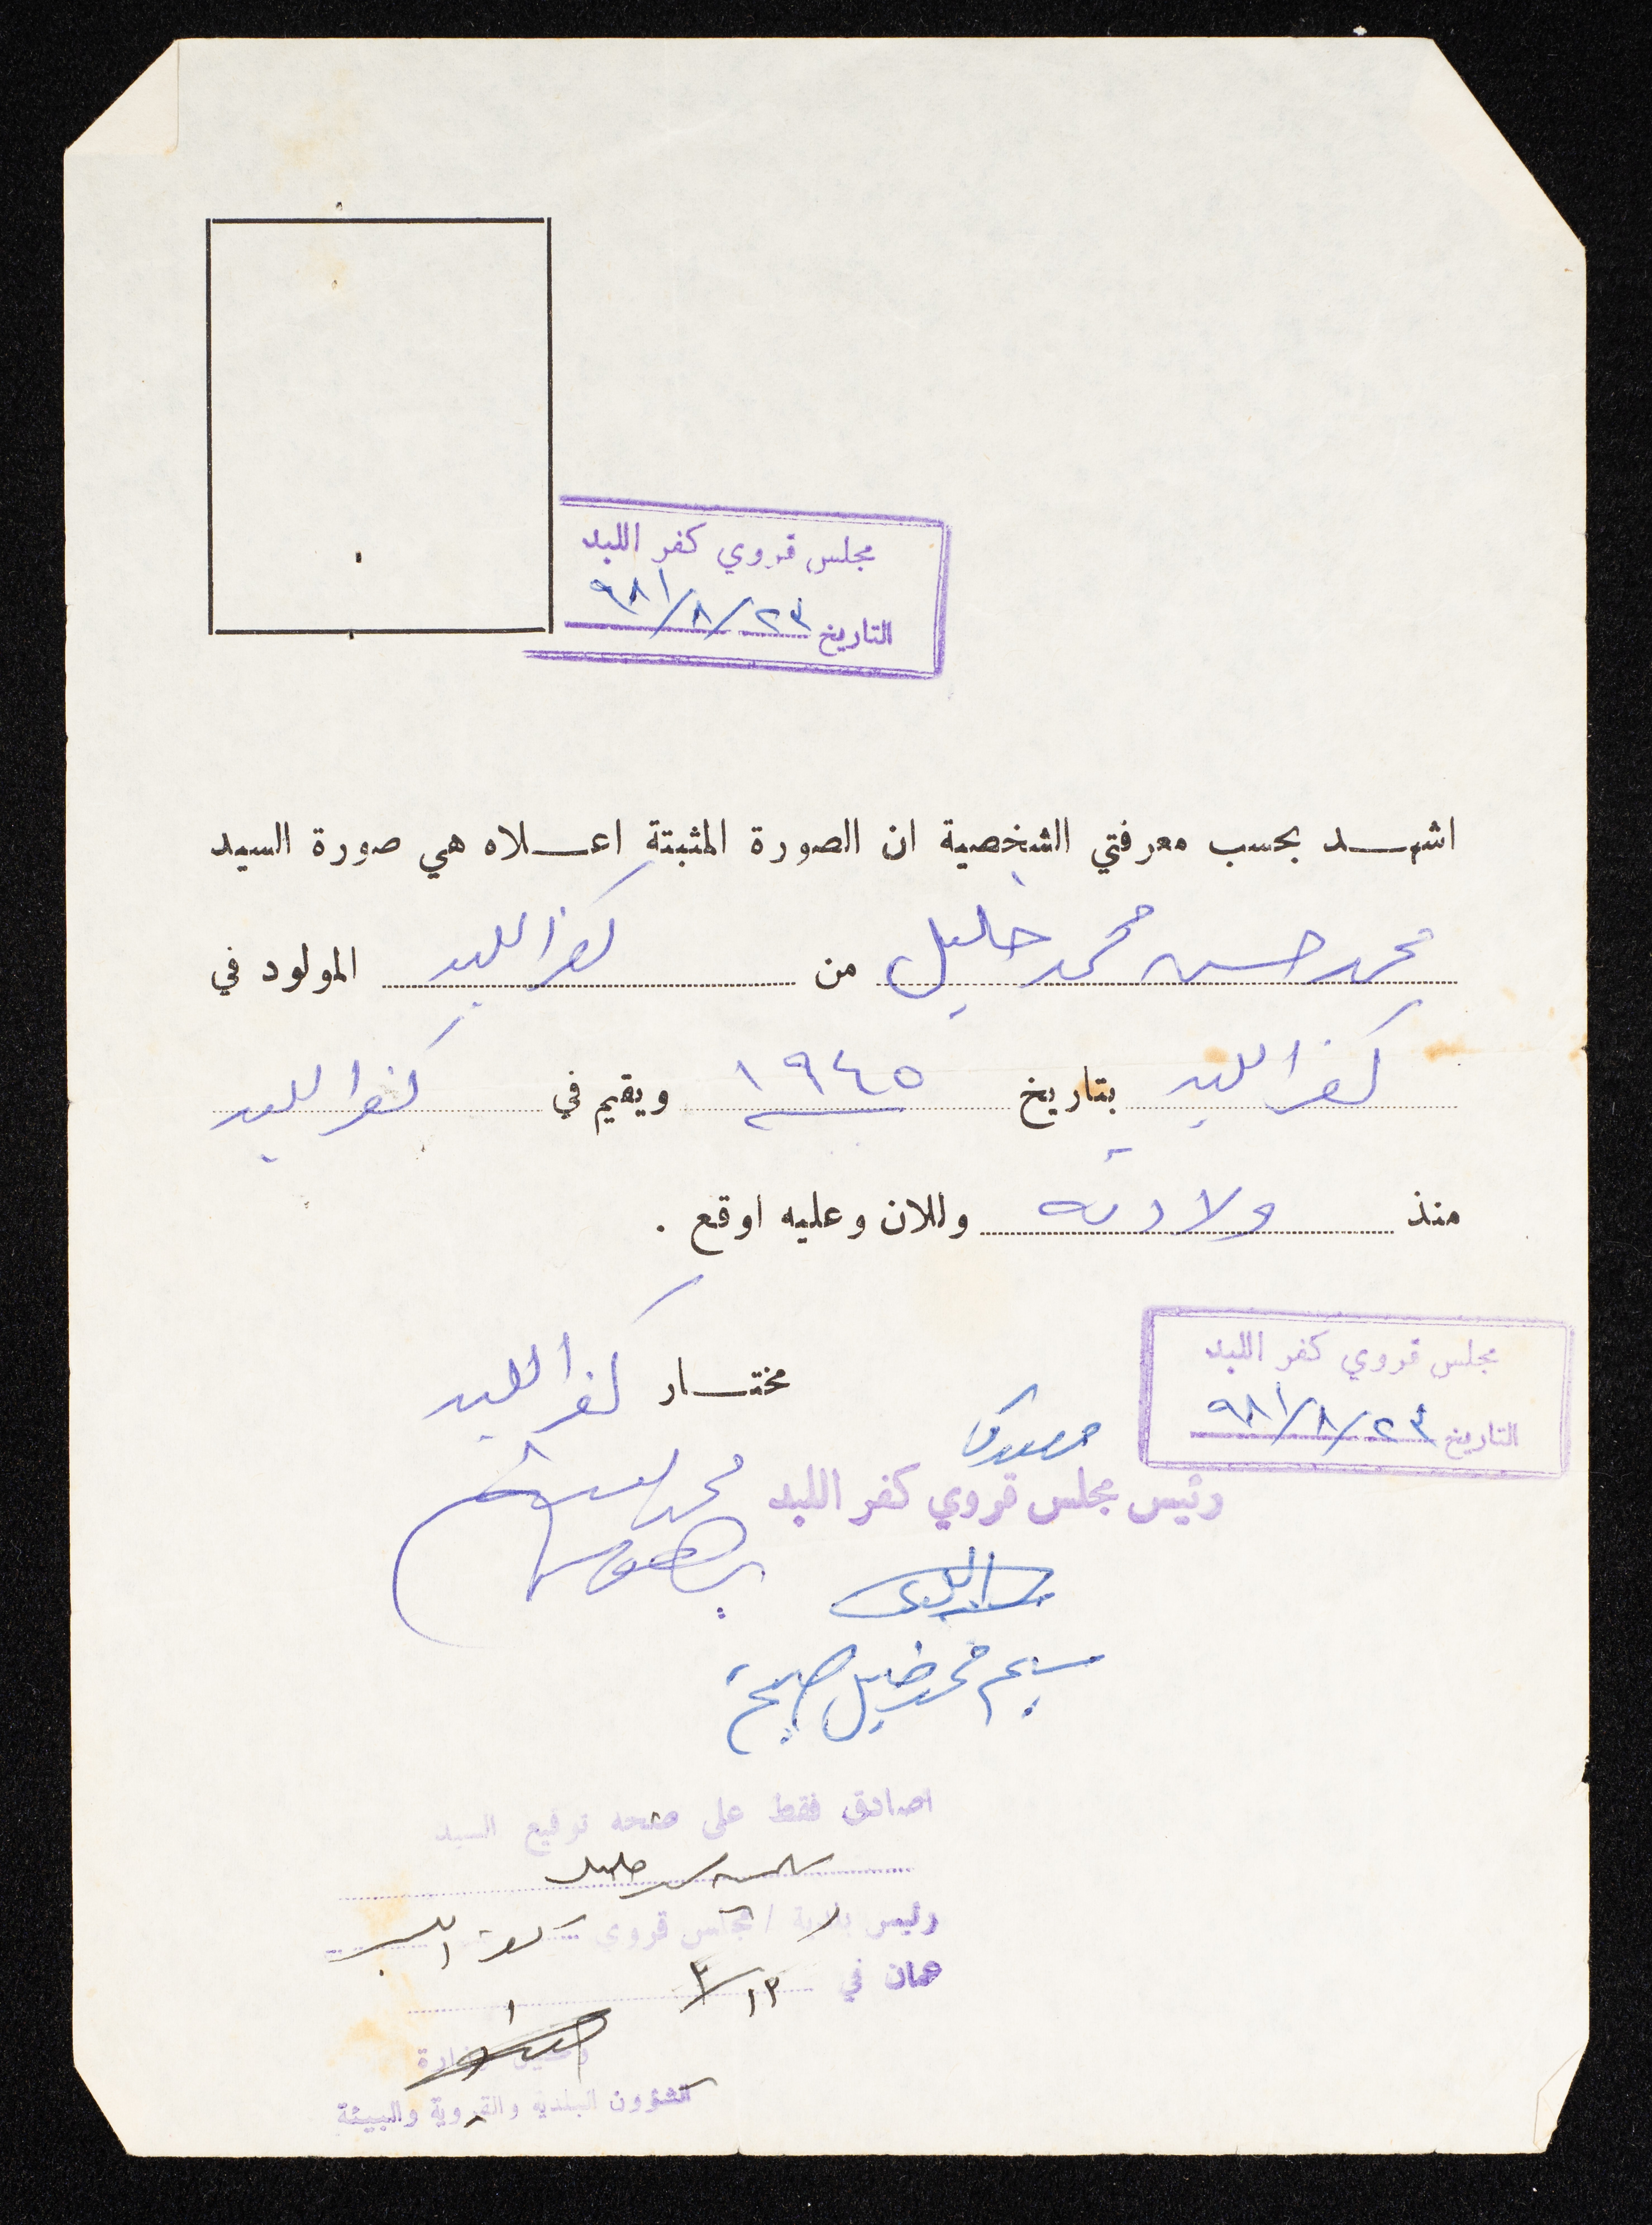 مجلس قروي كفر اللبد
التاريخ ٢٣/٨/٩٨١
اشهـــد بحسب معرفتي الشخصية ان الصورة المثبتة اعـــلاه هي صورة السيد
محمد حسن محمد خليل من كفر اللبد المولود في
كفر اللبد بتاريخ ١٩٤٥ ويقيم في كفر اللبد
منذ ولادته وللان وعليه اوقع .
مجلس قروي كفر اللبد
التاريخ ٢٣/٨/٩٨١
مختـــار كفر اللبد
مصدق
رئيس مجلس قروي كفر اللبد
محمد خليل
اصادق فقط على صحه توقيع السيد
خليل
رئيس بلدية / مجلس قروي كفر اللبد
عمان في ١٣/٣
وزارة
الشؤون البلديه والقروية والبيئة